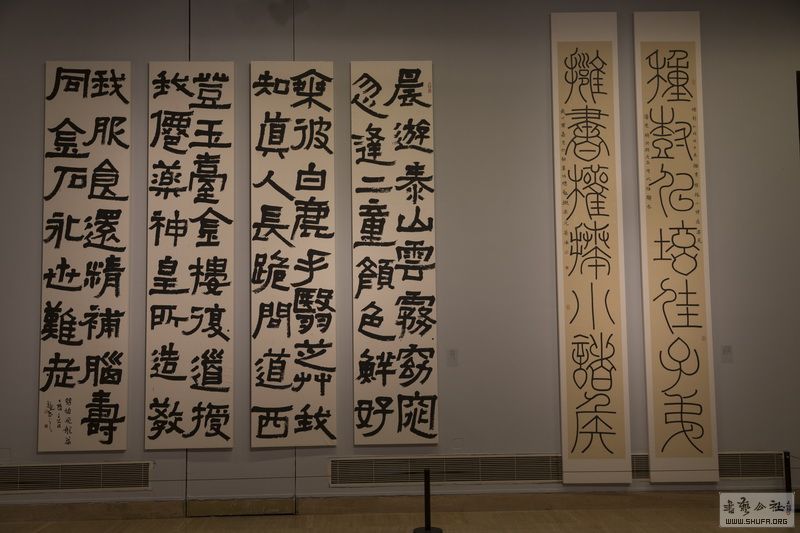 種樹培佳子弟
擁書權拜小諸侯
晨遊泰山雲霧窈窕
忽逢二童顏色鮮好
乘彼白鹿手翳芝艸我
知真人長跪問道西
登玉臺金樓復道授
我僊藥神皇所造教
我服食還精補腦壽
同金石永世難老
WWW.SHUFA.ORG